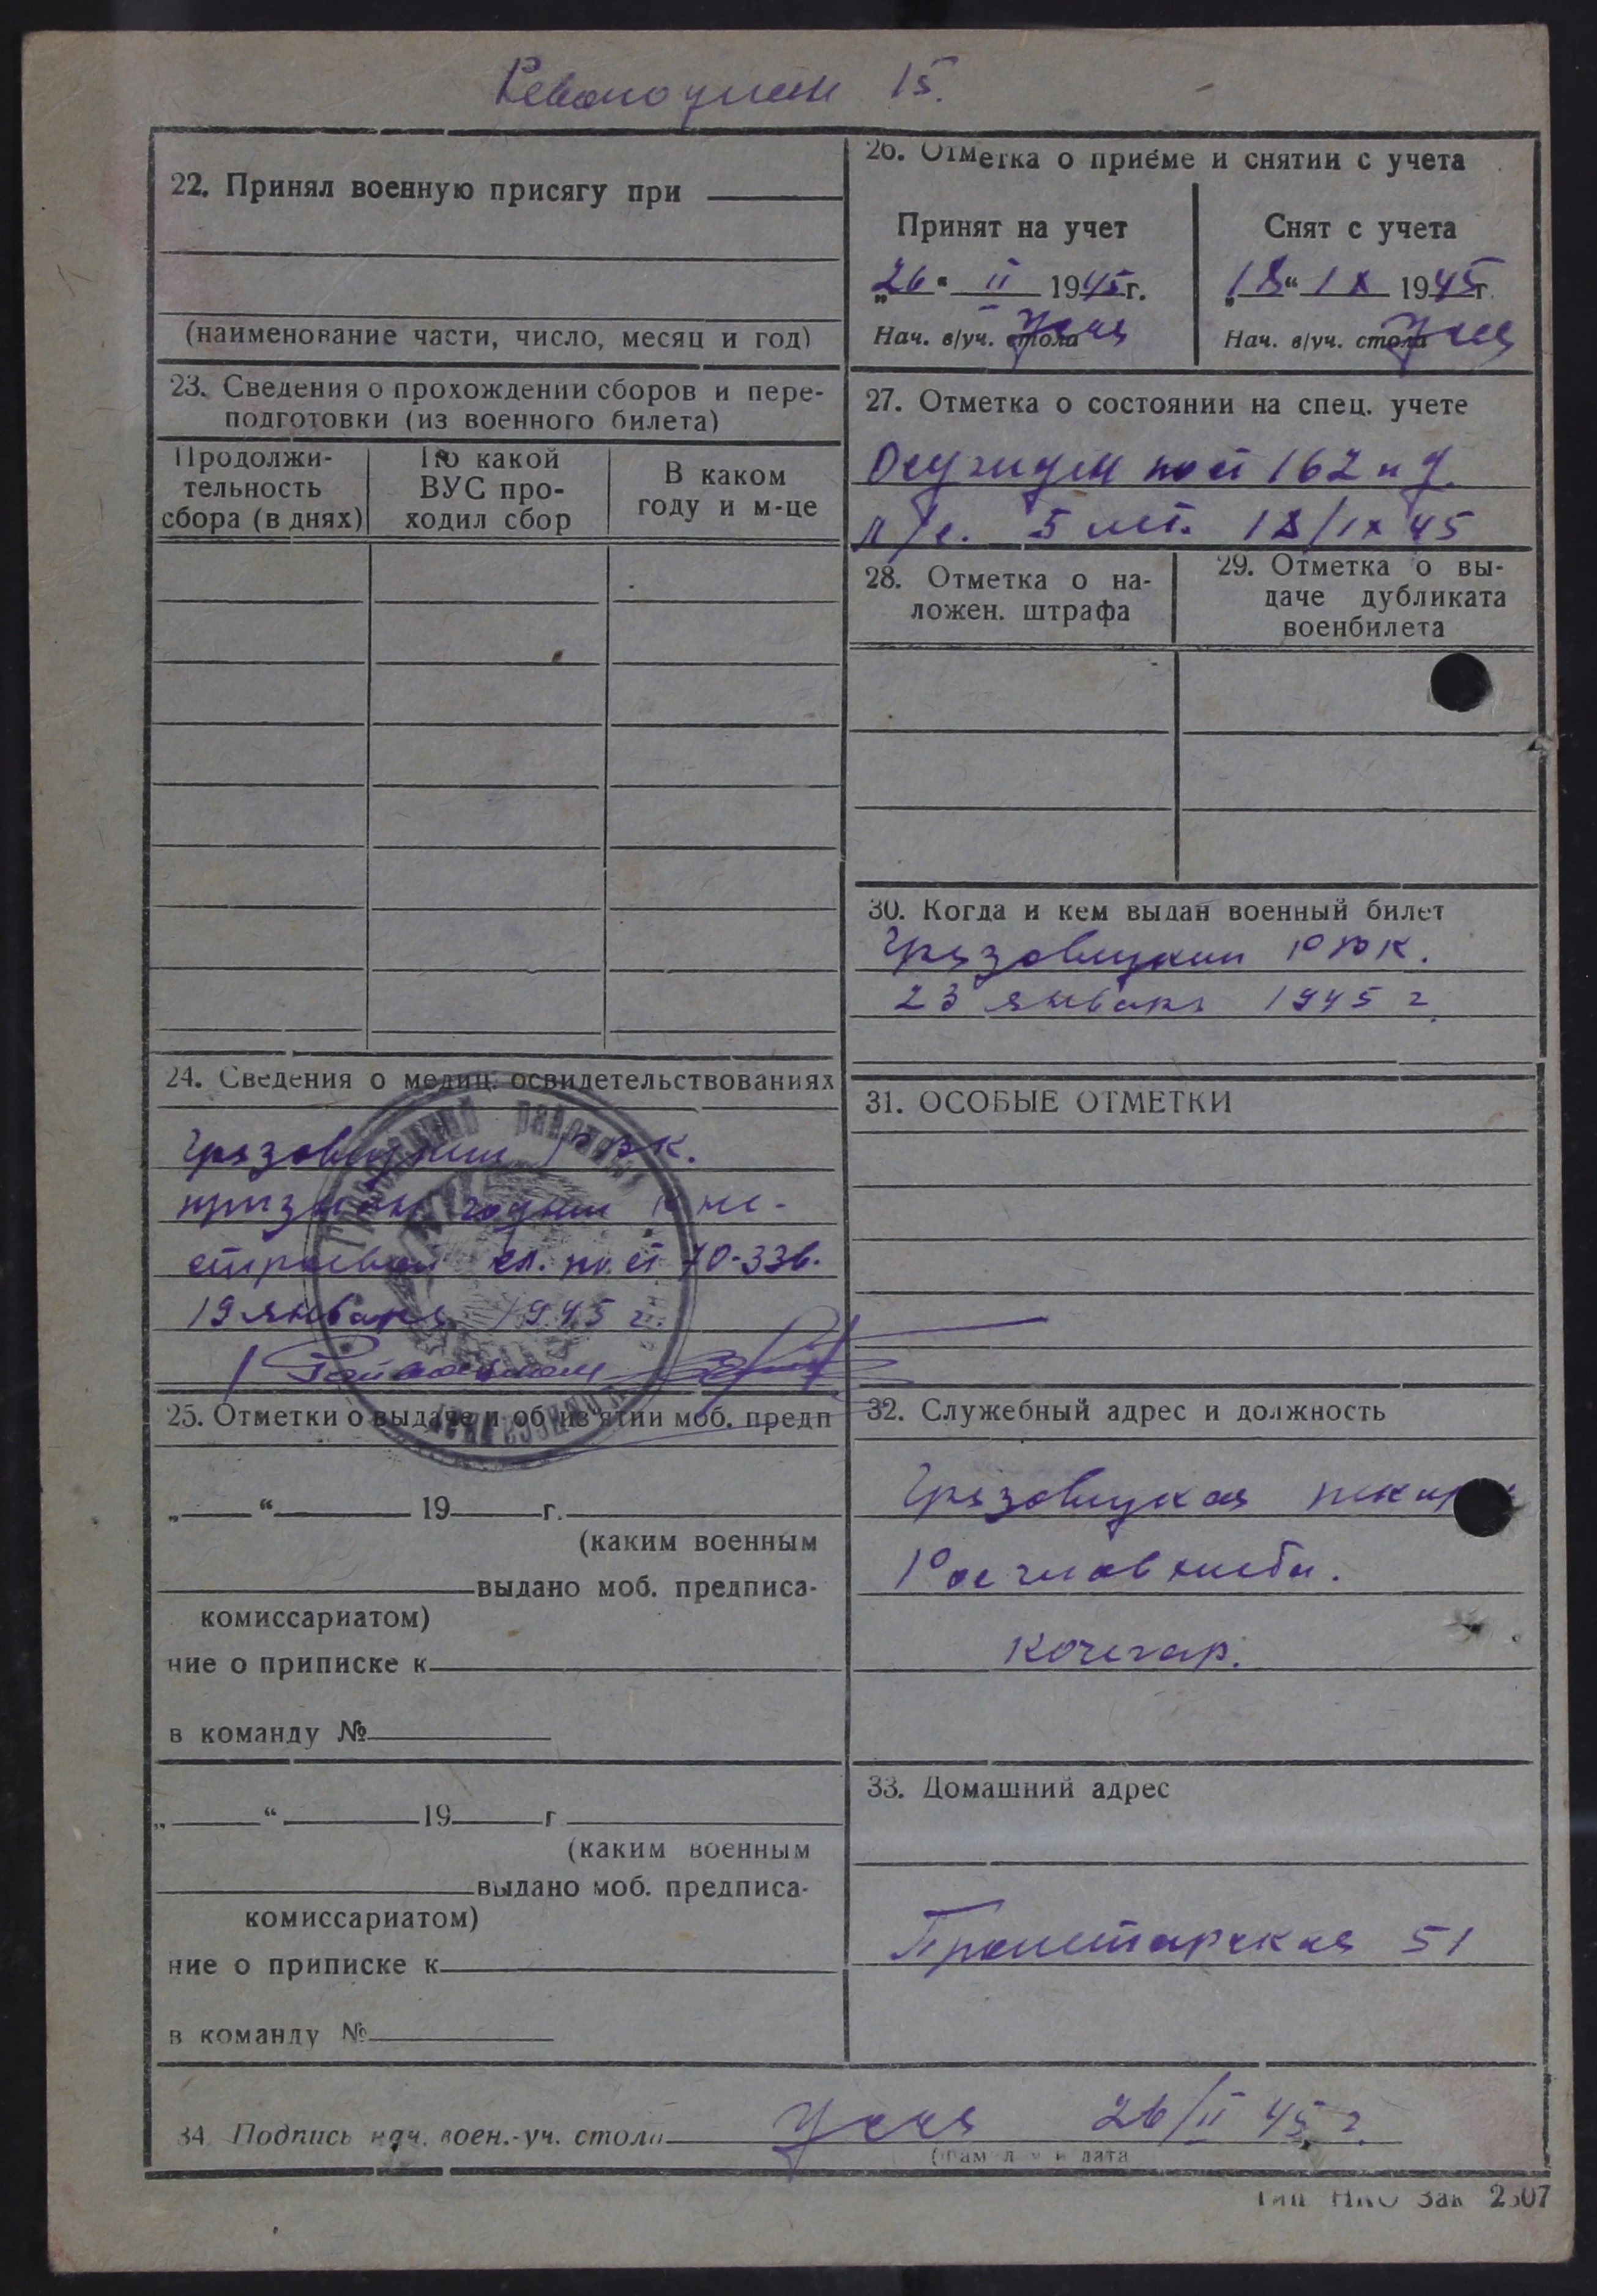 Революции 15.
22. Принял военную присягу при
(наименование части, число, месяц и год)
23. Сведения о прохождении сборов и пере-
подготовки (из военного билета)
Продолжи-
тельность
сбора (в днях)
По какой
ВУС про-
ходил сбор
В каком
году и м-це
24. Сведения о медиц. освидетельствованиях
Грязовецким РВК.
признан годным к не-
строевой сл. по ст 70-336.
19 января 1945 г.
25. Отметки о выдаче и об из'ятии моб. предп
„ “ 19 г.
(каким военным
выдано моб. предписа-
комиссариатом)
ние о приписке к
в команду №
„ “ 19 г
(каким военным
выдано моб. предписа-
комиссариатом)
ние о приписке к
в команду №
26. Отметка о приеме и снятии с учета
Принят на учет
„26“ II 1945г.
Нач. в/уч. стола
Снят с учета
„18“ IX 1945г.
Нач. в/уч. стола
27. Отметка о состоянии на спец. учете
Осужден по ст 162 п д.
л/с. 5 лет. 18/IX 45
28. Отметка о на-
ложен. штрафа
29. Отметка о вы-
даче дубликата
военбилета
30. Когда и кем выдан военный билет
Грязовецким РВК.
23 января 1945 г.
31. ОСОБЫЕ ОТМЕТКИ
32. Служебный адрес и должность
Грязовецкая
Росглавхлеба.
кочегар.
33. Домашний адрес
Пролетарская 51
34. Подпись нач. воен.-уч. стола 26/II 45 г.
Тип НКО Зак 2307